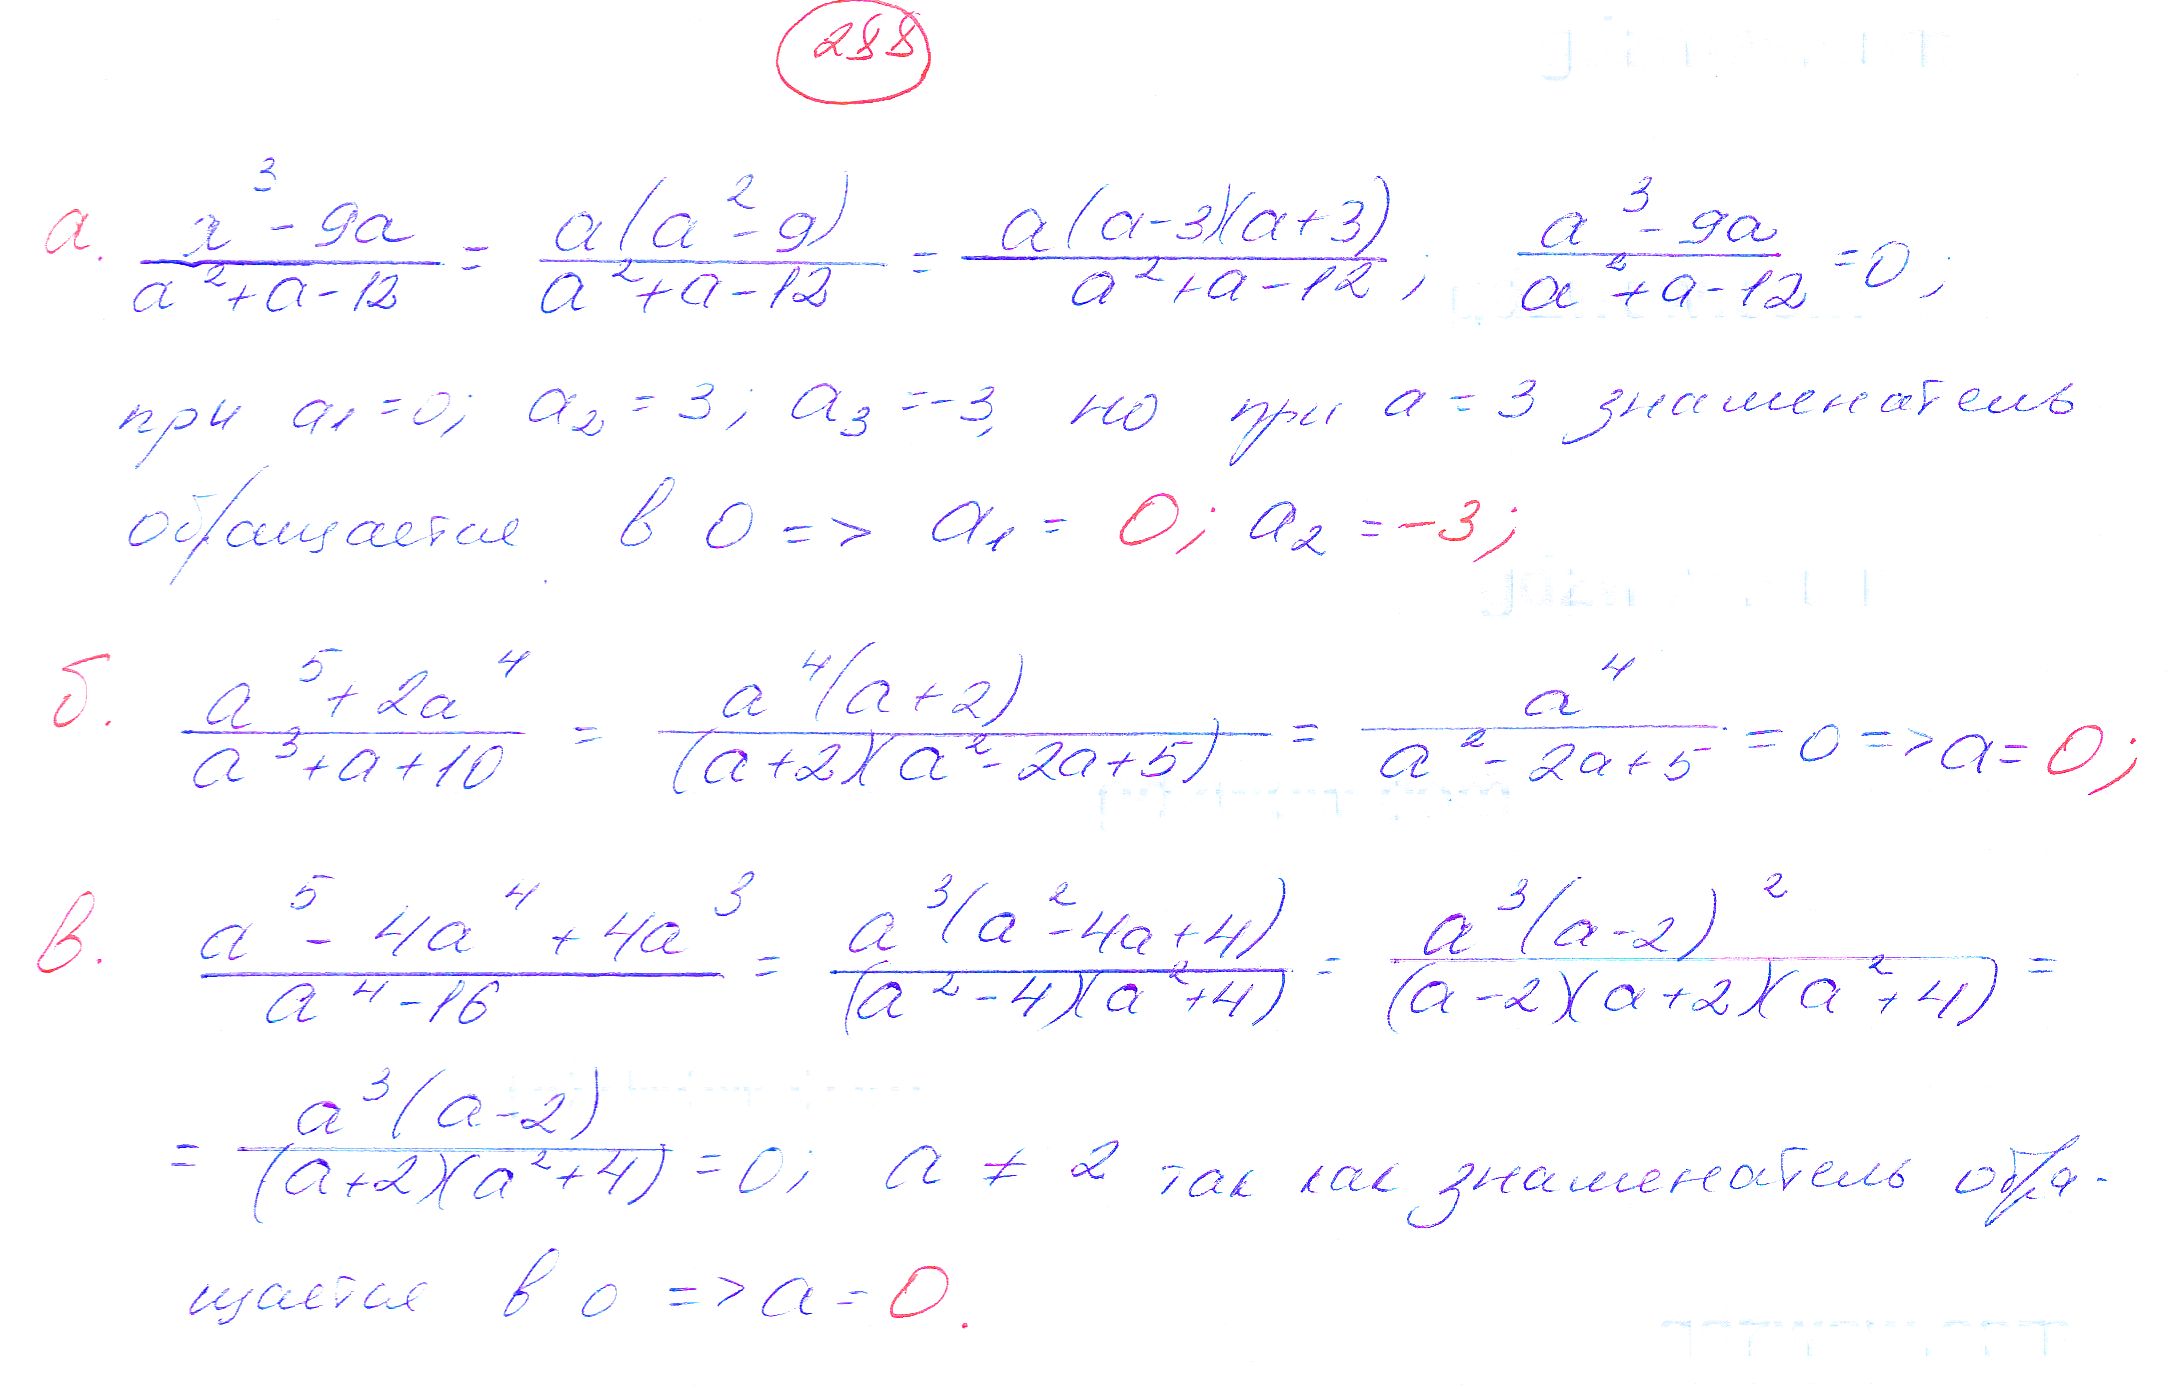 288
а. (x³ - 9a)/(a² + a - 12) = (a(a² - 9))/(a² + a - 12) = (a(a-3)(a+3))/(a² + a - 12); (a³ - 9a)/(a² + a - 12) = 0;
при a₁ = 0; a₂ = 3; a₃ = -3, но при a = 3 знаменатель
обращается в 0 => a₁ = 0; a₂ = -3;
б. (a⁵ + 2a⁴)/(a³ + a + 10) = (a⁴(a+2))/((a+2)(a² - 2a + 5)) = a⁴/(a² - 2a + 5) = 0 => a = 0;
в. (a⁵ - 4a⁴ + 4a³)/(a⁴ - 16) = (a³(a² - 4a + 4))/((a² - 4)(a² + 4)) = (a³(a-2)²)/((a-2)(a+2)(a² + 4)) =
= (a³(a-2))/((a+2)(a² + 4)) = 0; a ≠ 2 так как знаменатель обра-
щается в 0 => a = 0.